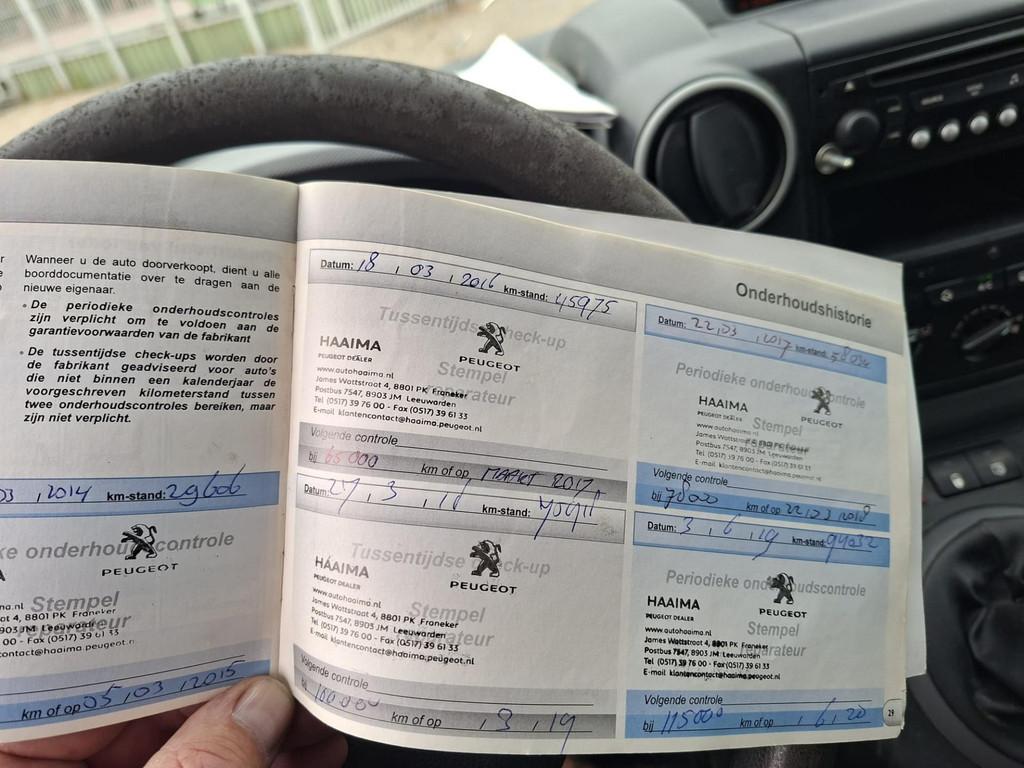 Wanneer u de auto doorverkoopt, dient u alle
boorddocumentatie over te dragen aan de
nieuwe eigenaar.
• De periodieke onderhoudscontroles
zijn verplicht om te voldoen aan de
garantievoorwaarden van de fabrikant
• De tussentijdse check-ups worden door
de fabrikant geadviseerd voor auto's
die niet binnen een kalenderjaar de
voorgeschreven kilometerstand tussen
twee onderhoudscontroles bereiken, maar
zijn niet verplicht.
03 , 2014 km-stand: 29606
ke onderhoudscontrole
PEUGEOT
Stempel
4, 8801 PK Franeker
903 JM Leeuwarden
00 - Fax (0517) 39 61 33
contact@haaima.peugeot.nl
km of op 05,03,2015
Onderhoudshistorie
Datum: 18 , 03 , 2016 km-stand: 45975
Tussentijdse check-up
HAAIMA
PEUGEOT DEALER
PEUGEOT
Stempel
reparateur
www.autohaaima.nl
James Wattstraat 4, 8801 PK Franeker
Postbus 7547, 8903 JM Leeuwarden
Tel (0517) 39 76 00 - Fax (0517) 39 61 33
E-mail klantencontact@haaima.peugeot.nl
Volgende controle
bij 65000 km of op MAART 2017
Datum: 22,03 , 2017 km-stand:
Periodieke onderhoudscontrole
HAAIMA
PEUGEOT DEALER
PEUGEOT
Stempel
reparateur
www.autohaaima.nl
James Wattstraat 4, 8801 PK Franeker
Postbus 7547, 8903 JM Leeuwarden
Tel (0517) 39 76 00 - Fax (0517) 39 61 33
E-mail klantencontact@haaima.peugeot.nl
Volgende controle
bij 78000 km of op 22,03 2018
Datum: 27 , 3 , 18 km-stand:
Tussentijdse check-up
HAAIMA
PEUGEOT DEALER
PEUGEOT
Stempel
reparateur
www.autohaaima.nl
James Wattstraat 4, 8801 PK Franeker
Postbus 7547, 8903 JM Leeuwarden
Tel (0517) 39 76 00 - Fax (0517) 39 61 33
E-mail klantencontact@haaima.peugeot.nl
Volgende controle
bij 100000 km of op , 3 , 19
Datum: 3 , 6 , 19 km-stand: 94032
Periodieke onderhoudscontrole
HAAIMA
PEUGEOT DEALER
PEUGEOT
Stempel
reparateur
www.autohaaima.nl
James Wattstraat 4, 8801 PK Franeker
Postbus 7547, 8903 JM Leeuwarden
Tel (0517) 39 76 00 - Fax (0517) 39 61 33
E-mail klantencontact@haaima.peugeot.nl
Volgende controle
bij 115000 km of op , 6 , 20
29